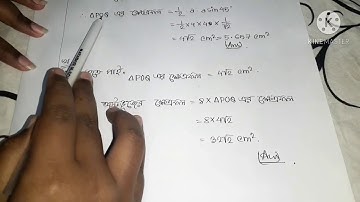 ∴ ΔPOQ এর ক্ষেত্রফল = 1/2 · a · a sin 45°
= 1/2 × 4 × 4 × 1/√2
= 4√2 cm² = 5.657 cm²
(Ans)
ΔPOQ এর ক্ষেত্রফল = 4√2 cm².
ক্ষেত্রফল = 8 × ΔPOQ এর ক্ষেত্রফল
= 8 × 4√2
= 32√2 cm².
Ans
KINEMASTER